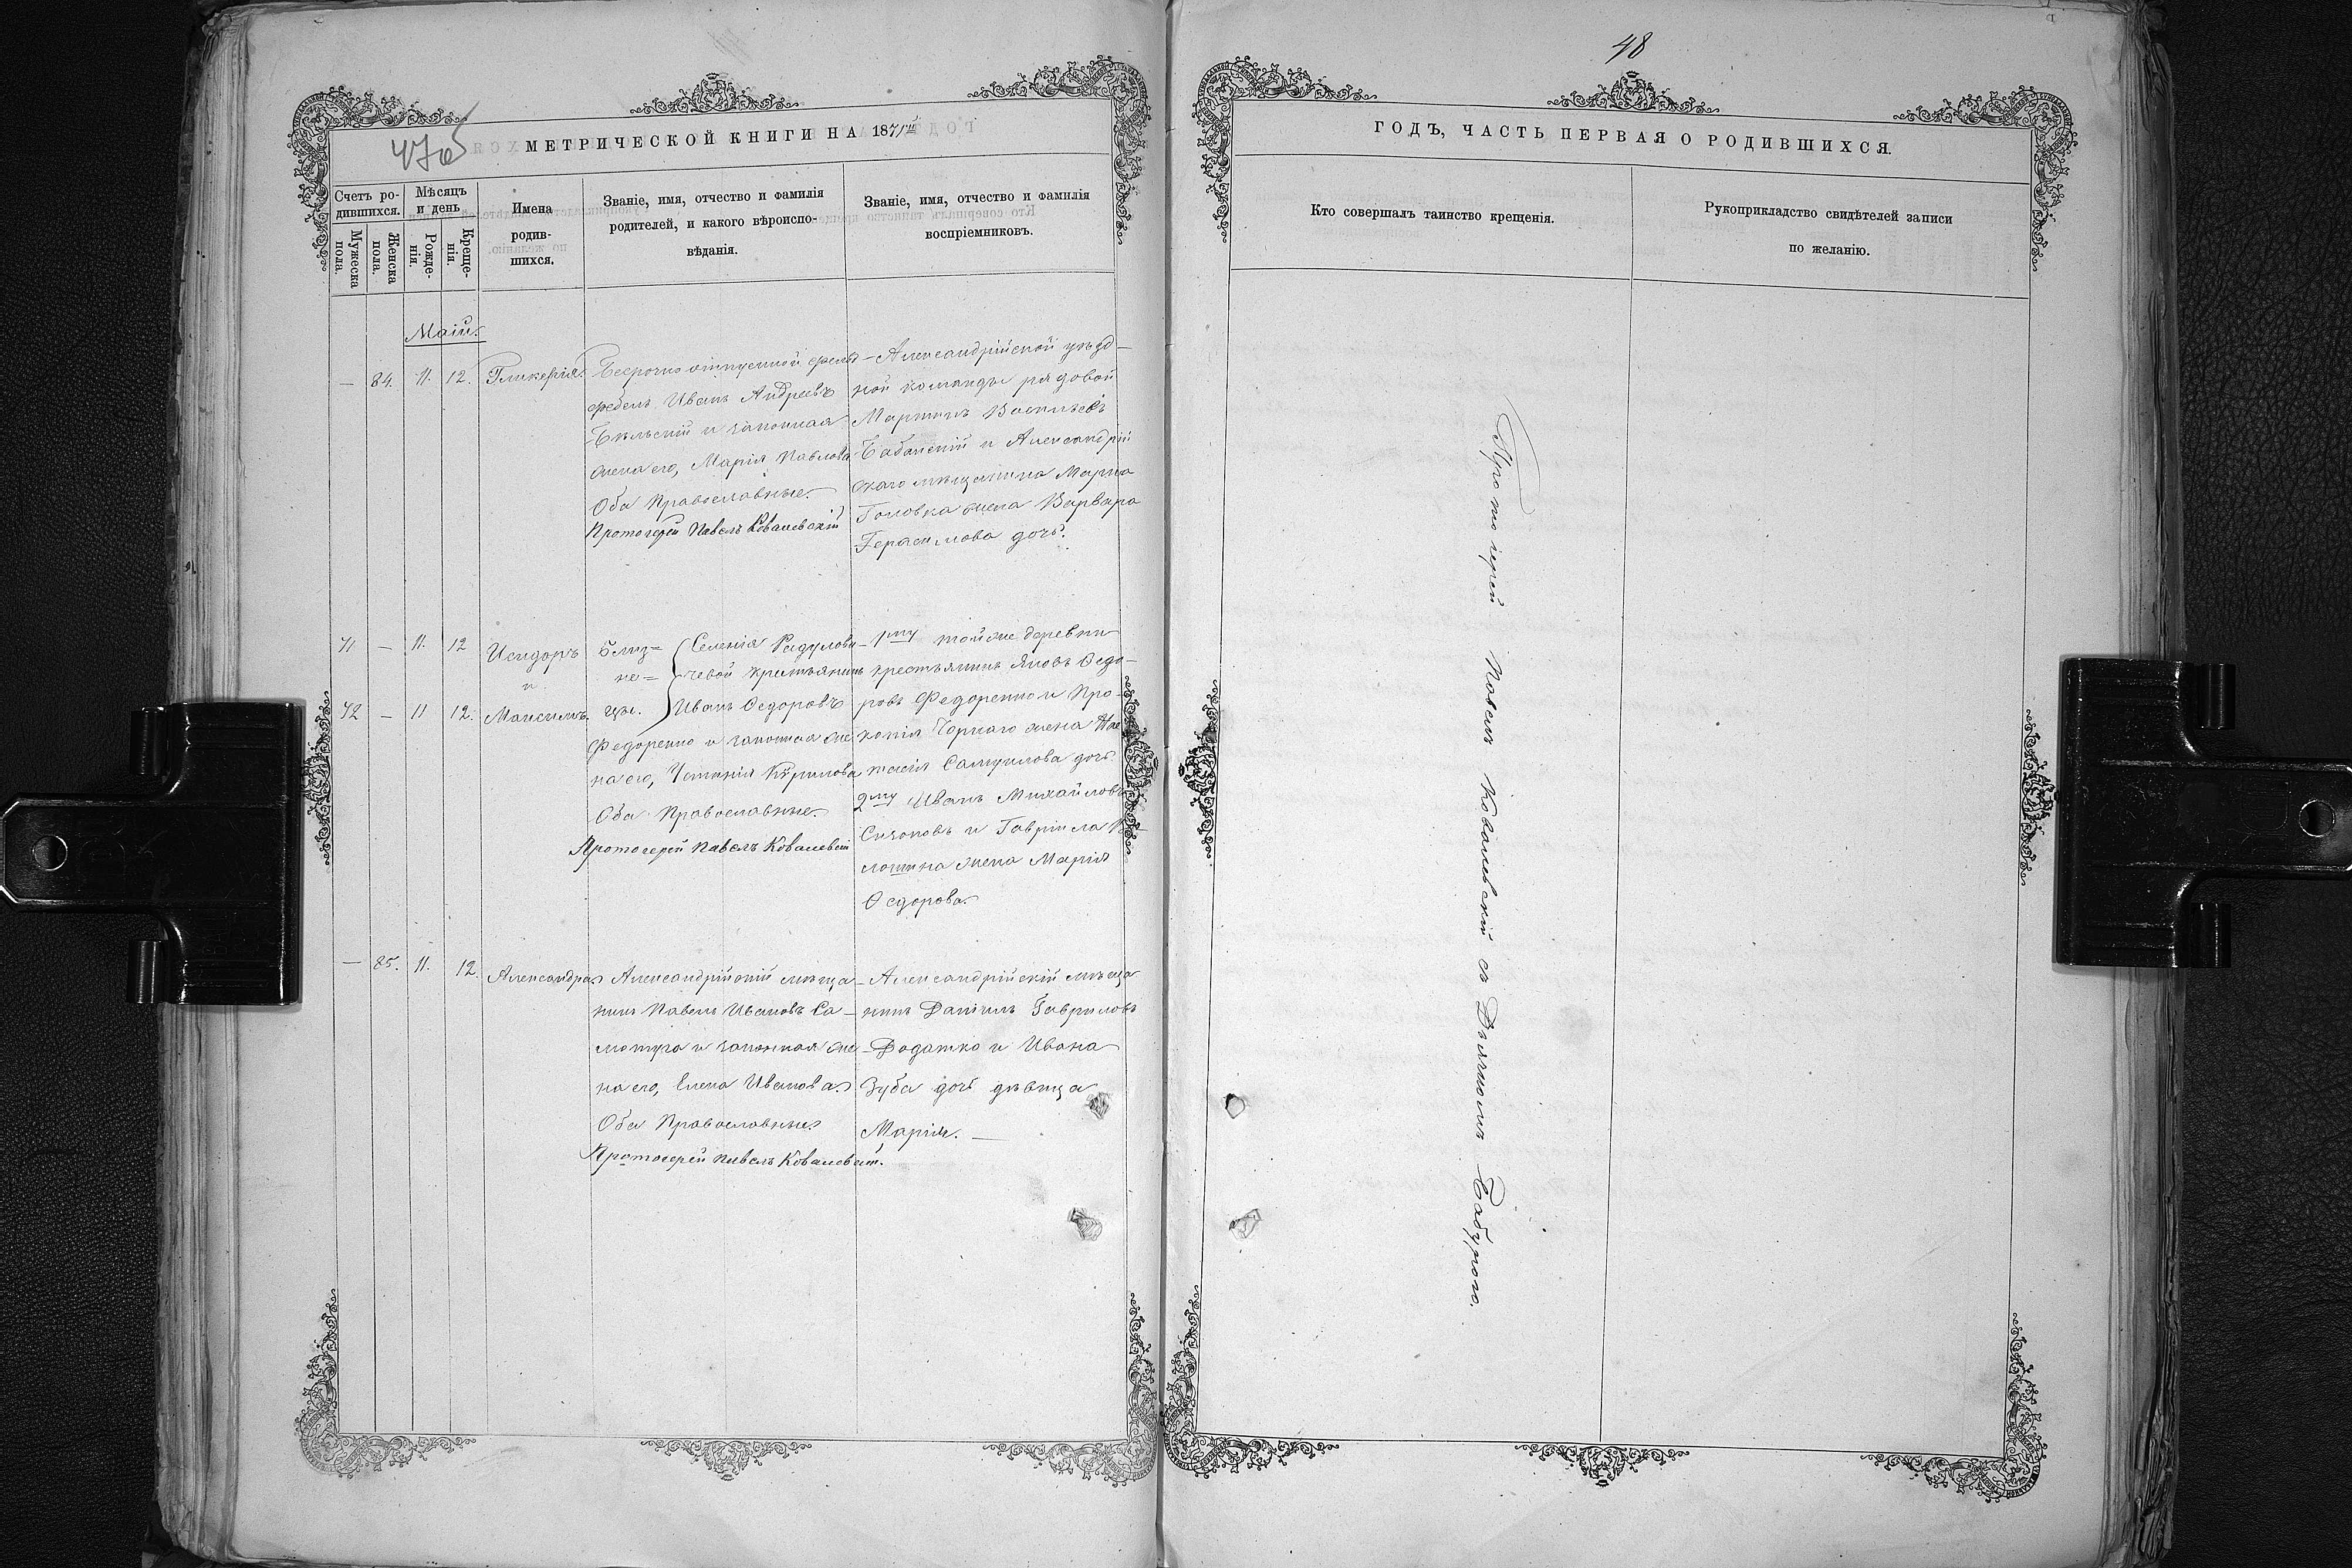 48
47об
МЕТРИЧЕСКОЙ КНИГИ НА 1871й
ГОДЪ, ЧАСТЬ ПЕРВАЯ О РОДИВШИХСЯ.
Счетъ ро-
дившихся.
Мужеска
пола.
Женска
пола.
Мѣсяцъ
и день
Рожде-
нія.
Креще-
нія.
Имена
родив-
шихся.
Званіе, имя, отчество и фамилія
родителей, и какого вѣроиспо-
вѣданія.
Званіе, имя, отчество и фамилія
воспріемниковъ.
Кто совершалъ таинство крещенія.
Рукоприкладство свидѣтелей записи
по желанію.
Маій.
— 84. 11. 12. Гликерія.
Безсрочно отпускной фельд-
фебель Иванъ Андреевъ
Бѣльскій и законная
жена его, Марія Павлова
Оба Православные.
Протоіерей Павелъ Ковалевскій
Александрійской уѣзд-
ной команды рядовой
Мартинъ Васильевъ
Бабанскій и Александрій
скаго мѣщанина Марка
Головка жена Варвара
Герасимова дочь.
71 — 11. 12 Исидоръ
и
72 — 11 12. Максимъ.
Близ=
не=
цы.
Селенія Радулови-
чевой крестьянинъ
Иванъ Ѳедоровъ
Федоренко и законная же
на его, Устинія Кѵрилова
Оба Православные.
Протоіерей Павелъ Ковалевскій
1му тойже деревни
крестьянинъ Яковъ Ѳедо-
ровъ Федоренко и Про-
копія Чорнаго жена Нас
тасія Самуилова дочь.
2му Иванъ Михайловъ
Сизоновъ и Гавріила
жена Марія
Ѳедорова.
— 85. 11. 12. Александра.
Александрійскій мѣща-
нинъ Павелъ Ивановъ Са-
мотуга и законная же-
на его, Елена Иванова.
Оба Православные.
Протоіерей Павелъ Ковалевскій.
Александрійскій мѣща
нинъ Даніилъ Гавриловъ
Додатко и Ивана
Зуба дочь дѣвица
Марія. —
Протоіерей Павелъ Ковалевскій съ Дьячкомъ